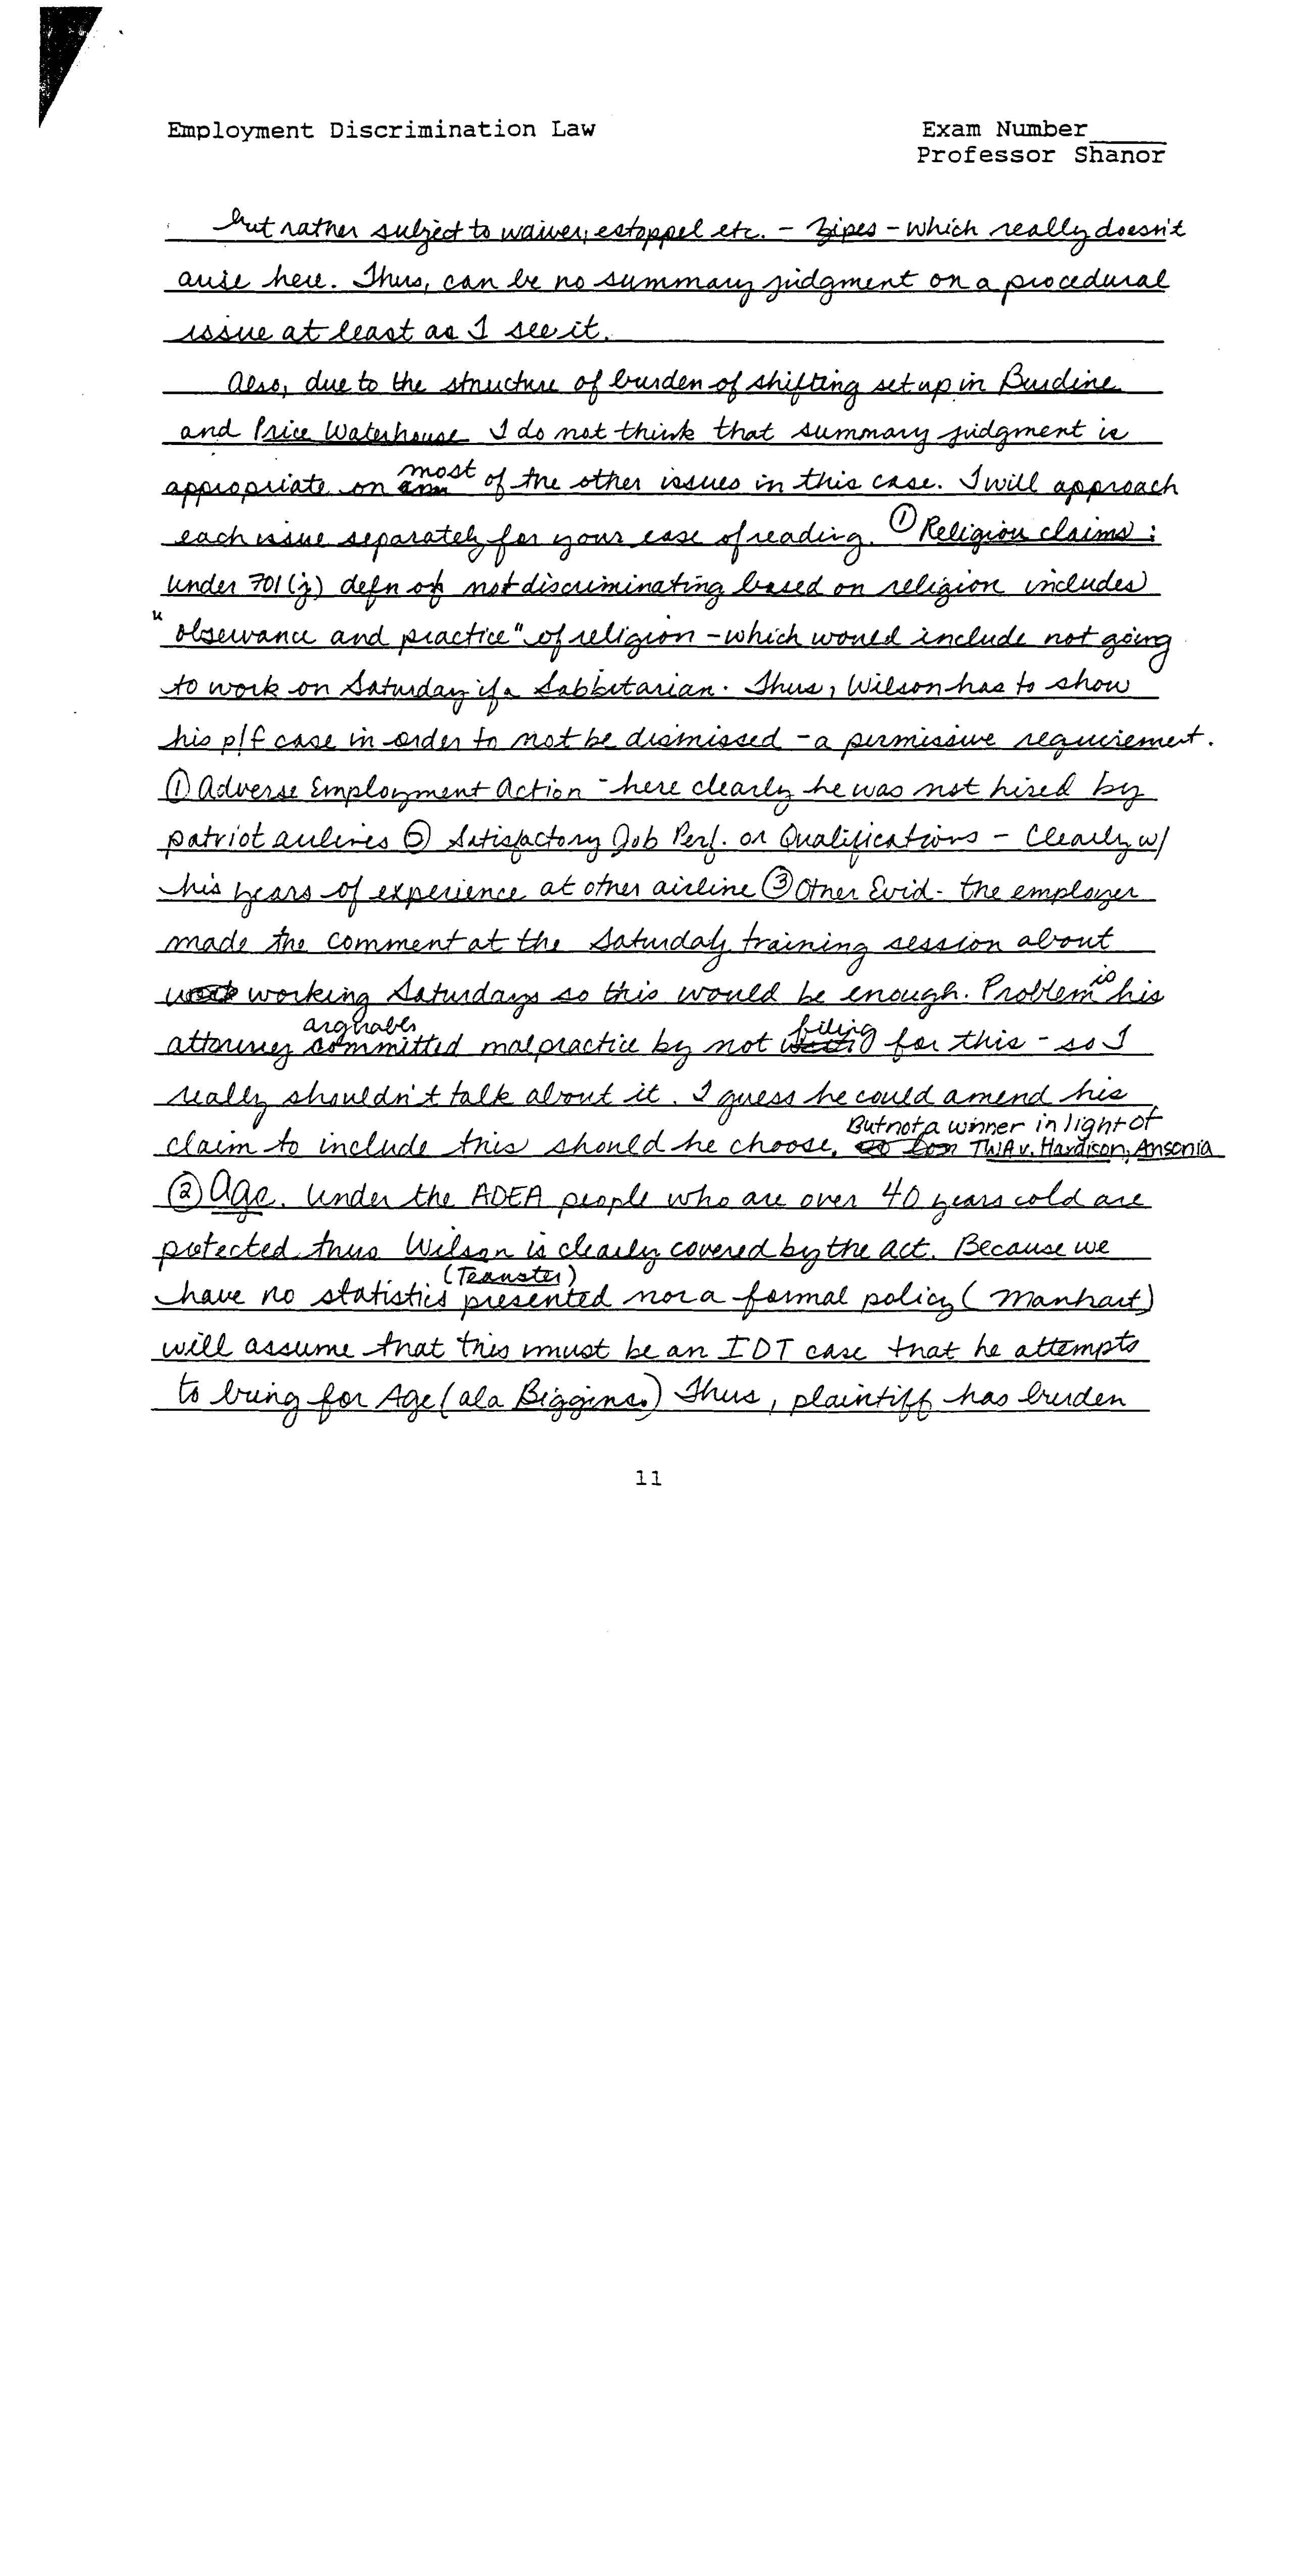 Employment Discrimination Law Exam Number
Professor Shanor
but rather subject to waiver, estoppel etc. - Zipes - which really doesn't
arise here. Thus, can be no summary judgment on a procedural
issue at least as I see it.
Also, due to the structure of burden of shifting set up in Burdine
and Price Waterhouse I do not think that summary judgment is
appropriate on most of the other issues in this case. I will approach
each issue separately for your ease of reading. ① Religion claims:
under 701(j) defn of not discriminating based on religion includes
"observance and practice" of religion - which would include not going
to work on Saturday if a Sabbitarian. Thus, Wilson has to show
his p/f case in order to not be dismissed - a permissive requirement.
① Adverse Employment Action - here clearly he was not hired by
patriot airlines ② Satisfactory Job Perf. or Qualifications - Clearly w/
his years of experience at other airline ③ Other Evid - the employer
made the comment at the Saturday training session about
working Saturdays so this would be enough. Problem is his
attorney arguably committed malpractice by not filing for this - so I
really shouldn't talk about it. I guess he could amend his
claim to include this should he choose. But not a winner in light of TWA v. Hardison, Ansonia
② Age. Under the ADEA people who are over 40 years old are
protected thus Wilson is clearly covered by the act. Because we
have no statistics (Teamster) presented nor a formal policy (Manhart)
will assume that this must be an IDT case that he attempts
to bring for Age (ala Biggins.) Thus, plaintiff has burden
11